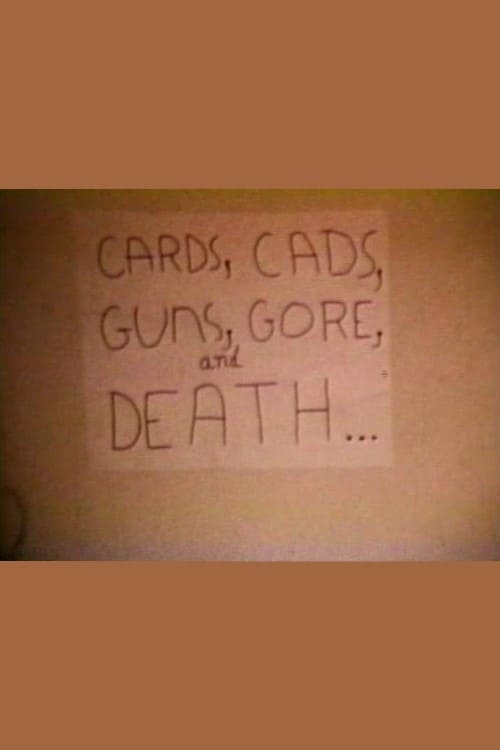 CARDS, CADS,
GUNS, GORE,
and
DEATH...